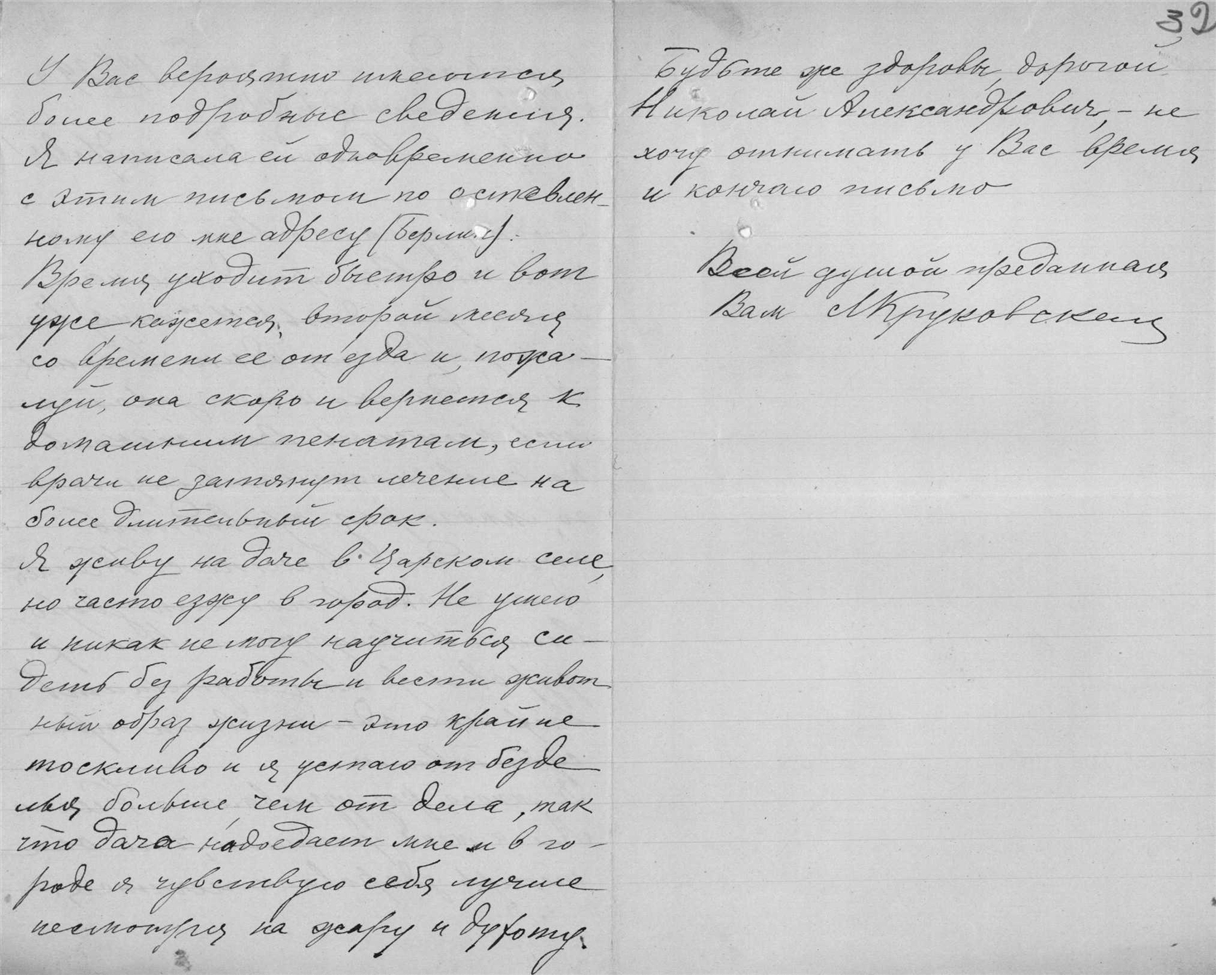 У Вас вероятно имеются
более подробные сведения.
Я написала ей одновременно
с этим письмом по оставлен-
ному ею мне адресу (Берлин).
Время уходит быстро и вот
уже кажется, второй месяц
со времени ее отъезда и, пожа-
луй, она скоро и вернется к
домашним пенатам, если
врачи не затянут лечение на
более длительный срок.
Я живу на даче в Царском селе,
но часто езжу в город. Не умею
и никак не могу научиться си-
деть без работы и вести живот
ный образ жизни – это крайне
тоскливо и я устаю от безде
лья больше, чем от дела, так
что дача надоедает мне и в го-
роде я чувствую себя лучше
несмотря на жару и духоту.
32
Будьте же здоровы, дорогой
Николай Александрович, – не
хочу отнимать у Вас время
и кончаю письмо
Всей душой преданная
Вам МКруковская